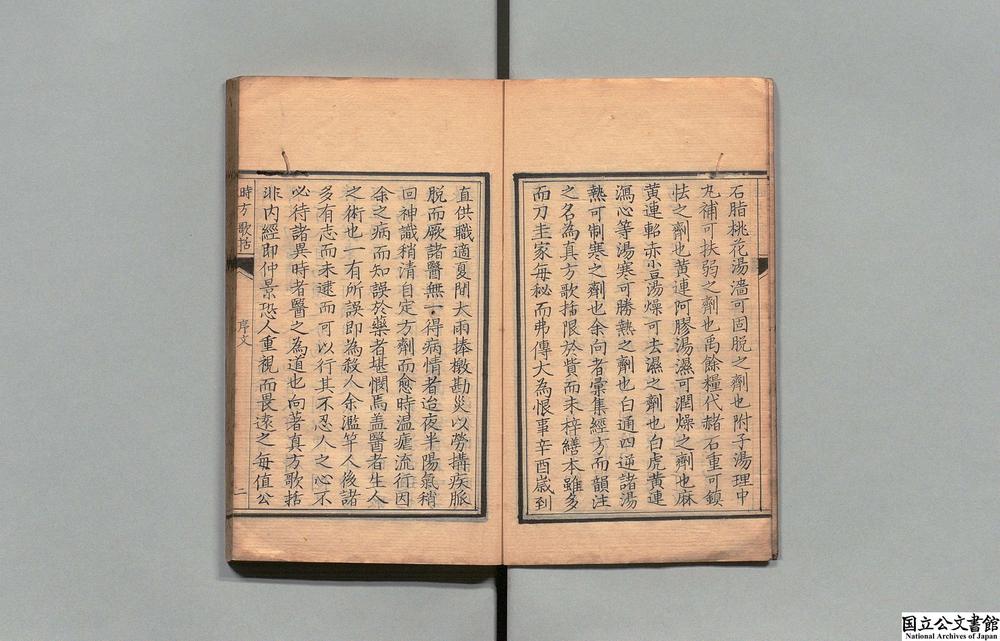 石脂桃花湯濇可固脱之劑也附子湯理中
丸補可扶弱之劑也禹餘糧代赭石重可鎮
怯之劑也黄連阿膠湯濕可潤燥之劑也麻
黄連軺赤小豆湯燥可去濕之劑也白虎黄連
瀉心等湯寒可勝熱之劑也白通四逆諸湯
熱可制寒之劑也余向者彙集經方而韻注
之名為真方歌括限於貲而未梓繕本雖多
而刀圭家每秘而弗傳大為恨事辛酉嵗到
直供職適夏閒大雨捧檄勘災以勞搆疾脈
脱而厥諸醫無一得病情者迨夜半陽氣稍
回神識稍清自定方劑而愈時温瘧流行因
余之病而知誤於藥者堪憫焉盖醫者生人
之術也一有所誤即為殺人余濫竽人後諸
多有志而未逮而可以行其不忍人之心不
必待諸異時者醫之為道也向著真方歌括
非内經即仲景恐人重視而畏遠之每值公
時方歌括
序文
二
国立公文書館
National Archives of Japan